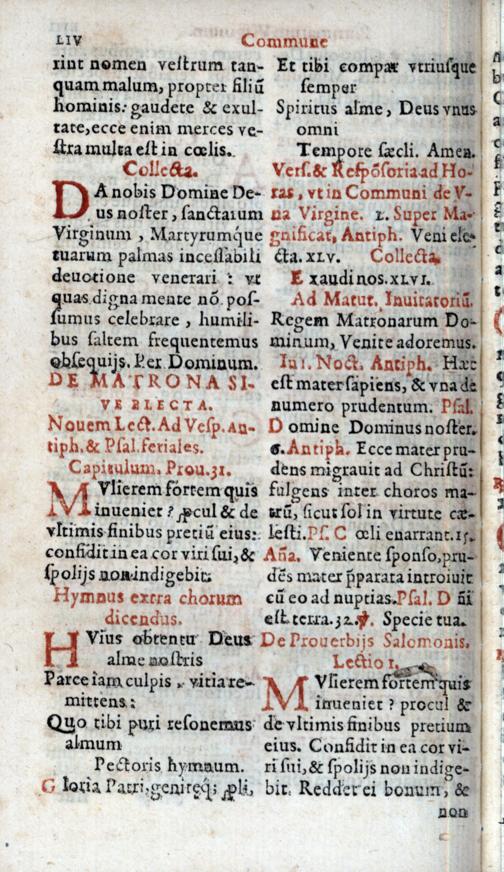 LIV
Commune
rint nomen vestrum tan-
quam malum, propter filiũ
hominis: gaudete & exul-
tate, ecce enim merces ve-
stra multa est in cœlis.
Collecta.
DA nobis Domine De-
us noster, sanctarum
Virginum, Martyrumque
tuarum palmas incessabili
deuotione venerari: vt
quas digna mente nõ pos-
sumus celebrare, humili-
bus saltem frequentemus
obsequijs. Per Dominum.
DE MATRONA SI-
VE ELECTA.
Nouem Lect. Ad Vesp. An-
tiph. & Psal. feriales.
Capitulum. Prou. 31.
MVlierem fortem quis
inueniet? ꝓcul & de
vltimis finibus pretiũ eius:
confidit in ea cor viri sui, &
spolijs non indigebit.
Hymnus extra chorum
dicendus.
HVius obtentu Deus
alme nostris
Parce iam culpis, vitia re-
mittens:
Quo tibi puri resonemus
almum
Pectoris hymnum.
Gloria Patri, genitęq; ꝓli,
Et tibi compar vtriusque
semper
Spiritus alme, Deus vnus
omni
Tempore sæcli. Amen.
Vers. & Respõsoria ad Ho-
ras, vt in Communi de V-
na Virgine. 2. Super Ma-
gnificat, Antiph. Veni ele-
cta. XLV. Collecta.
Exaudi nos. XLVI.
Ad Matut. Inuitatoriũ.
Regem Matronarum Do-
minum, Venite adoremus.
In 1. Noct. Antiph. Hæc
est mater sapiens, & vna de
numero prudentum. Psal.
Domine Dominus noster.
6. Antiph. Ecce mater pru-
dens migrauit ad Christũ:
fulgens inter choros ma-
trũ, sicut sol in virtute cæ-
lesti. Ps. Cœli enarrant. 15.
Aña. Veniente sponso, pru-
dẽs mater p̃parata introiuit
cũ eo ad nuptias. Psal. Dñi
est terra. 32. ℣. Specie tua.
De Prouerbijs Salomonis.
Lectio 1.
MVlierem fortem quis
inueniet? procul &
de vltimis finibus pretium
eius. Confidit in ea cor vi-
ri sui, & spolijs non indige-
bit. Reddet ei bonum, &
non